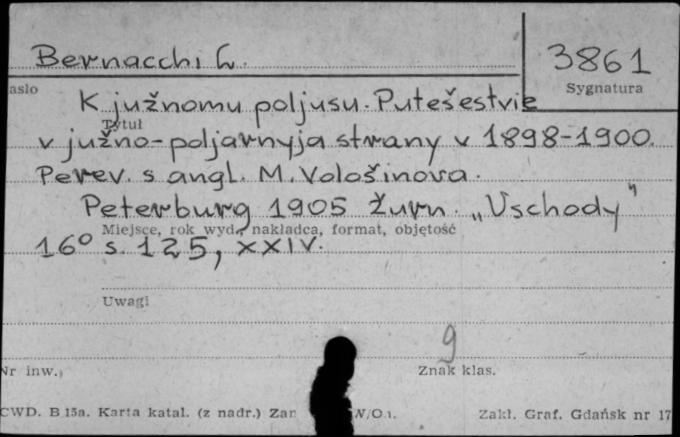 Bernacchi L.
3861
asło
Sygnatura
K južnomu poljusu. Putešestvie
Tytuł
v južno-poljarnyja strany v 1898-1900.
Perev. s angl. M. Vološinova.
Peterburg 1905 Žurn. „Vschody"
Miejsce, rok wyd., nakładca, format, objętość
16° s. 125, XXIV.
Uwagi
9
Nr inw.
Znak klas.
CWD. B 15a. Karta katal. (z nadr.) Zam N/O1.
Zakł. Graf. Gdańsk nr 17